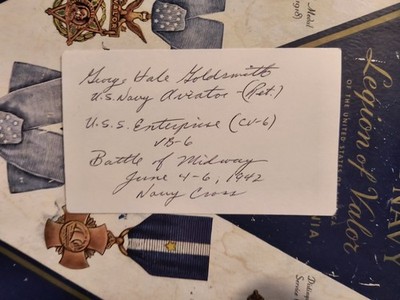 George Hale Goldsmith
U.S. Navy Aviator - (Ret.)
U.S.S. Enterprise (CV-6)
VB-6
Battle of Midway
June 4-6, 1942
Navy Cross
Legion of Valor
OF THE UNITED STATES
NAVY
Medal